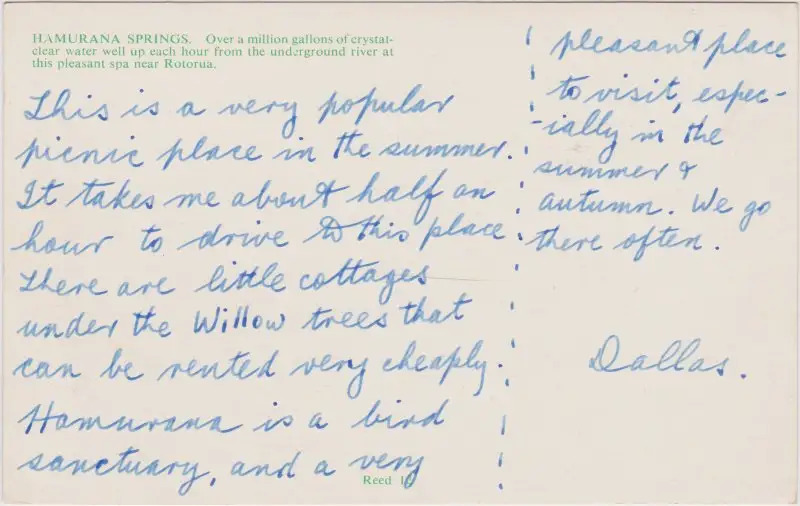 HAMURANA SPRINGS. Over a million gallons of crystal-
clear water well up each hour from the underground river at
this pleasant spa near Rotorua.
This is a very popular
picnic place in the summer.
It takes me about half an
hour to drive to this place.
There are little cottages
under the Willow trees that
can be rented very cheaply.
Hamurana is a bird
sanctuary, and a very
pleasant place
to visit, espec-
-ially in the
summer &
autumn. We go
there often.
Dallas.
Reed